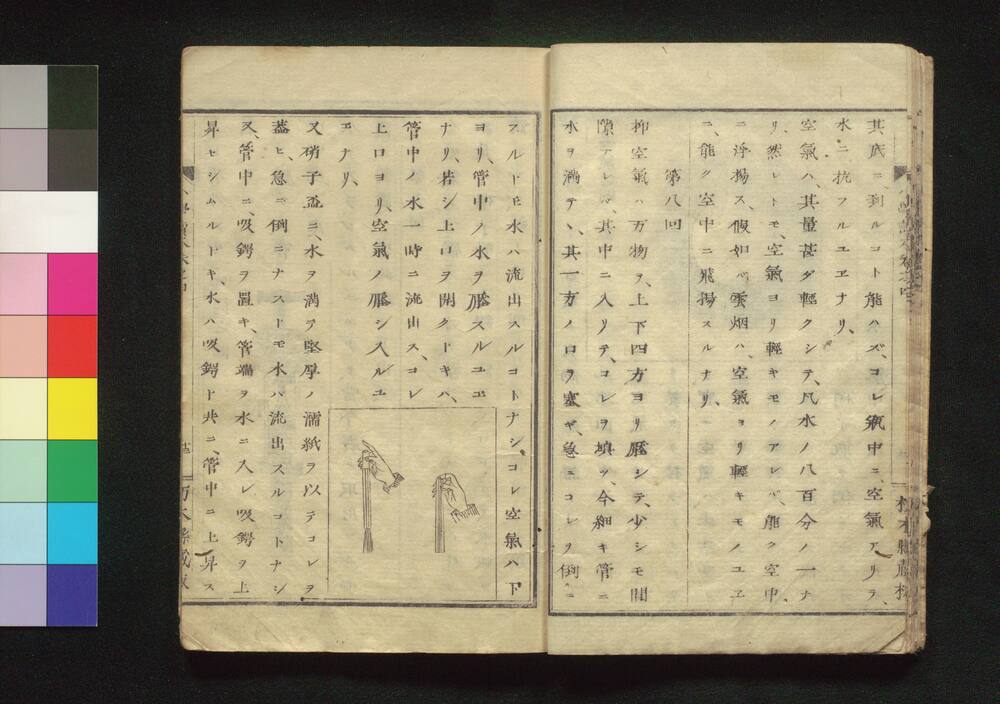 其底ニ到ルコト能ハズ、コレ瓶中ニ空氣アリテ、
水ニ抗フルユヱナリ、
空氣ハ、其量甚ダ輕クシテ、凡水ノ八百分ノ一ナ
リ、然レトモ、空氣ヨリ輕キモノアレバ、能ク空中
ニ浮揚ス、假如バ雲烟ハ、空氣ヨリ輕キモノユヱ
ニ、能ク空中ニ飛揚スルナリ、
第八回
抑空氣ハ万物ヲ、上下四方ヨリ壓シテ、少シモ間
隙アレバ、其中ニ入リテ、コレヲ填ツ、今細キ管ニ
水ヲ滿テ、其一方ノ口ヲ塞ギ、急ニコレヲ倒ニ
スルトモ水ハ流出スルコトナシ、コレ空氣ハ下
ヨリ、管中ノ水ヲ壓スルユヱ
ナリ、若シ上口ヲ開クトキハ、
管中ノ水一時ニ流出ス、コレ
上口ヨリ、空氣ノ壓シ入ルユ
ヱナリ、
又硝子盃ニ、水ヲ滿テ堅厚ノ濡紙ヲ以テコレヲ
蓋ヒ、急ニ倒ニナストモ水ハ流出スルコトナシ
又、管中ニ、吸鍔ヲ置キ、管端ヲ水ニ入レ吸鍔ヲ上
昇セシムルトキ、水ハ吸鍔ト共ニ、管中ニ上昇ス